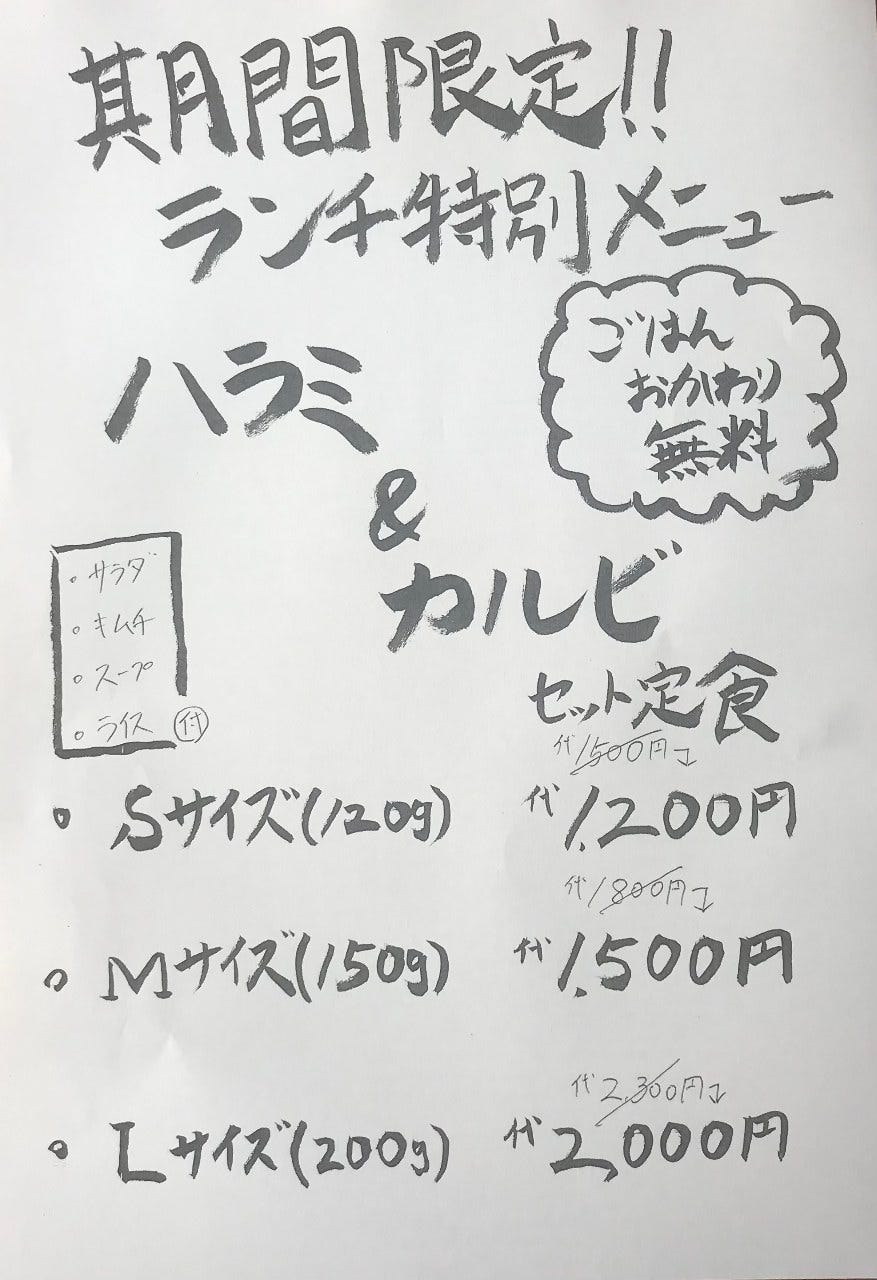 期間限定!!
ランチ特別メニュー
ごはん
おかわり
無料
ハラミ
&
カルビ
セット定食
。サラダ
。キムチ
。スープ
。ライス 付
代1500円
。Sサイズ(120g) 代1,200円
代1800円
。Mサイズ(150g) 代1,500円
代2,300円
。Lサイズ(200g) 代2,000円